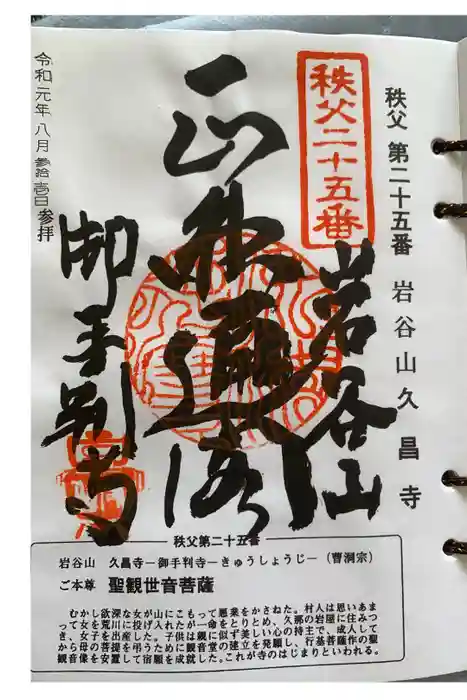 秩父 第二十五番 岩谷山久昌寺
秩父二十五番
岩谷山
御手判寺
令和元年八月参拾壱日参拝
秩父第二十五番
岩谷山 久昌寺−御手判寺−きゅうしょうじ−（曹洞宗）
ご本尊 聖観世音菩薩
むかし欲深な女が山にこもって悪業をかさねた。村人は思いあま
って女を荒川に投げ入れたが一命をとりとめ、久那の岩屋に住みつ
き、女子を出産した。子供は親に似ず美しい心の持主で、成人して
から母の菩提を弔うために観音堂の建立を発願し、行基菩薩作の聖
観音像を安置して宿願を成就した。これが寺のはじまりといわれる。